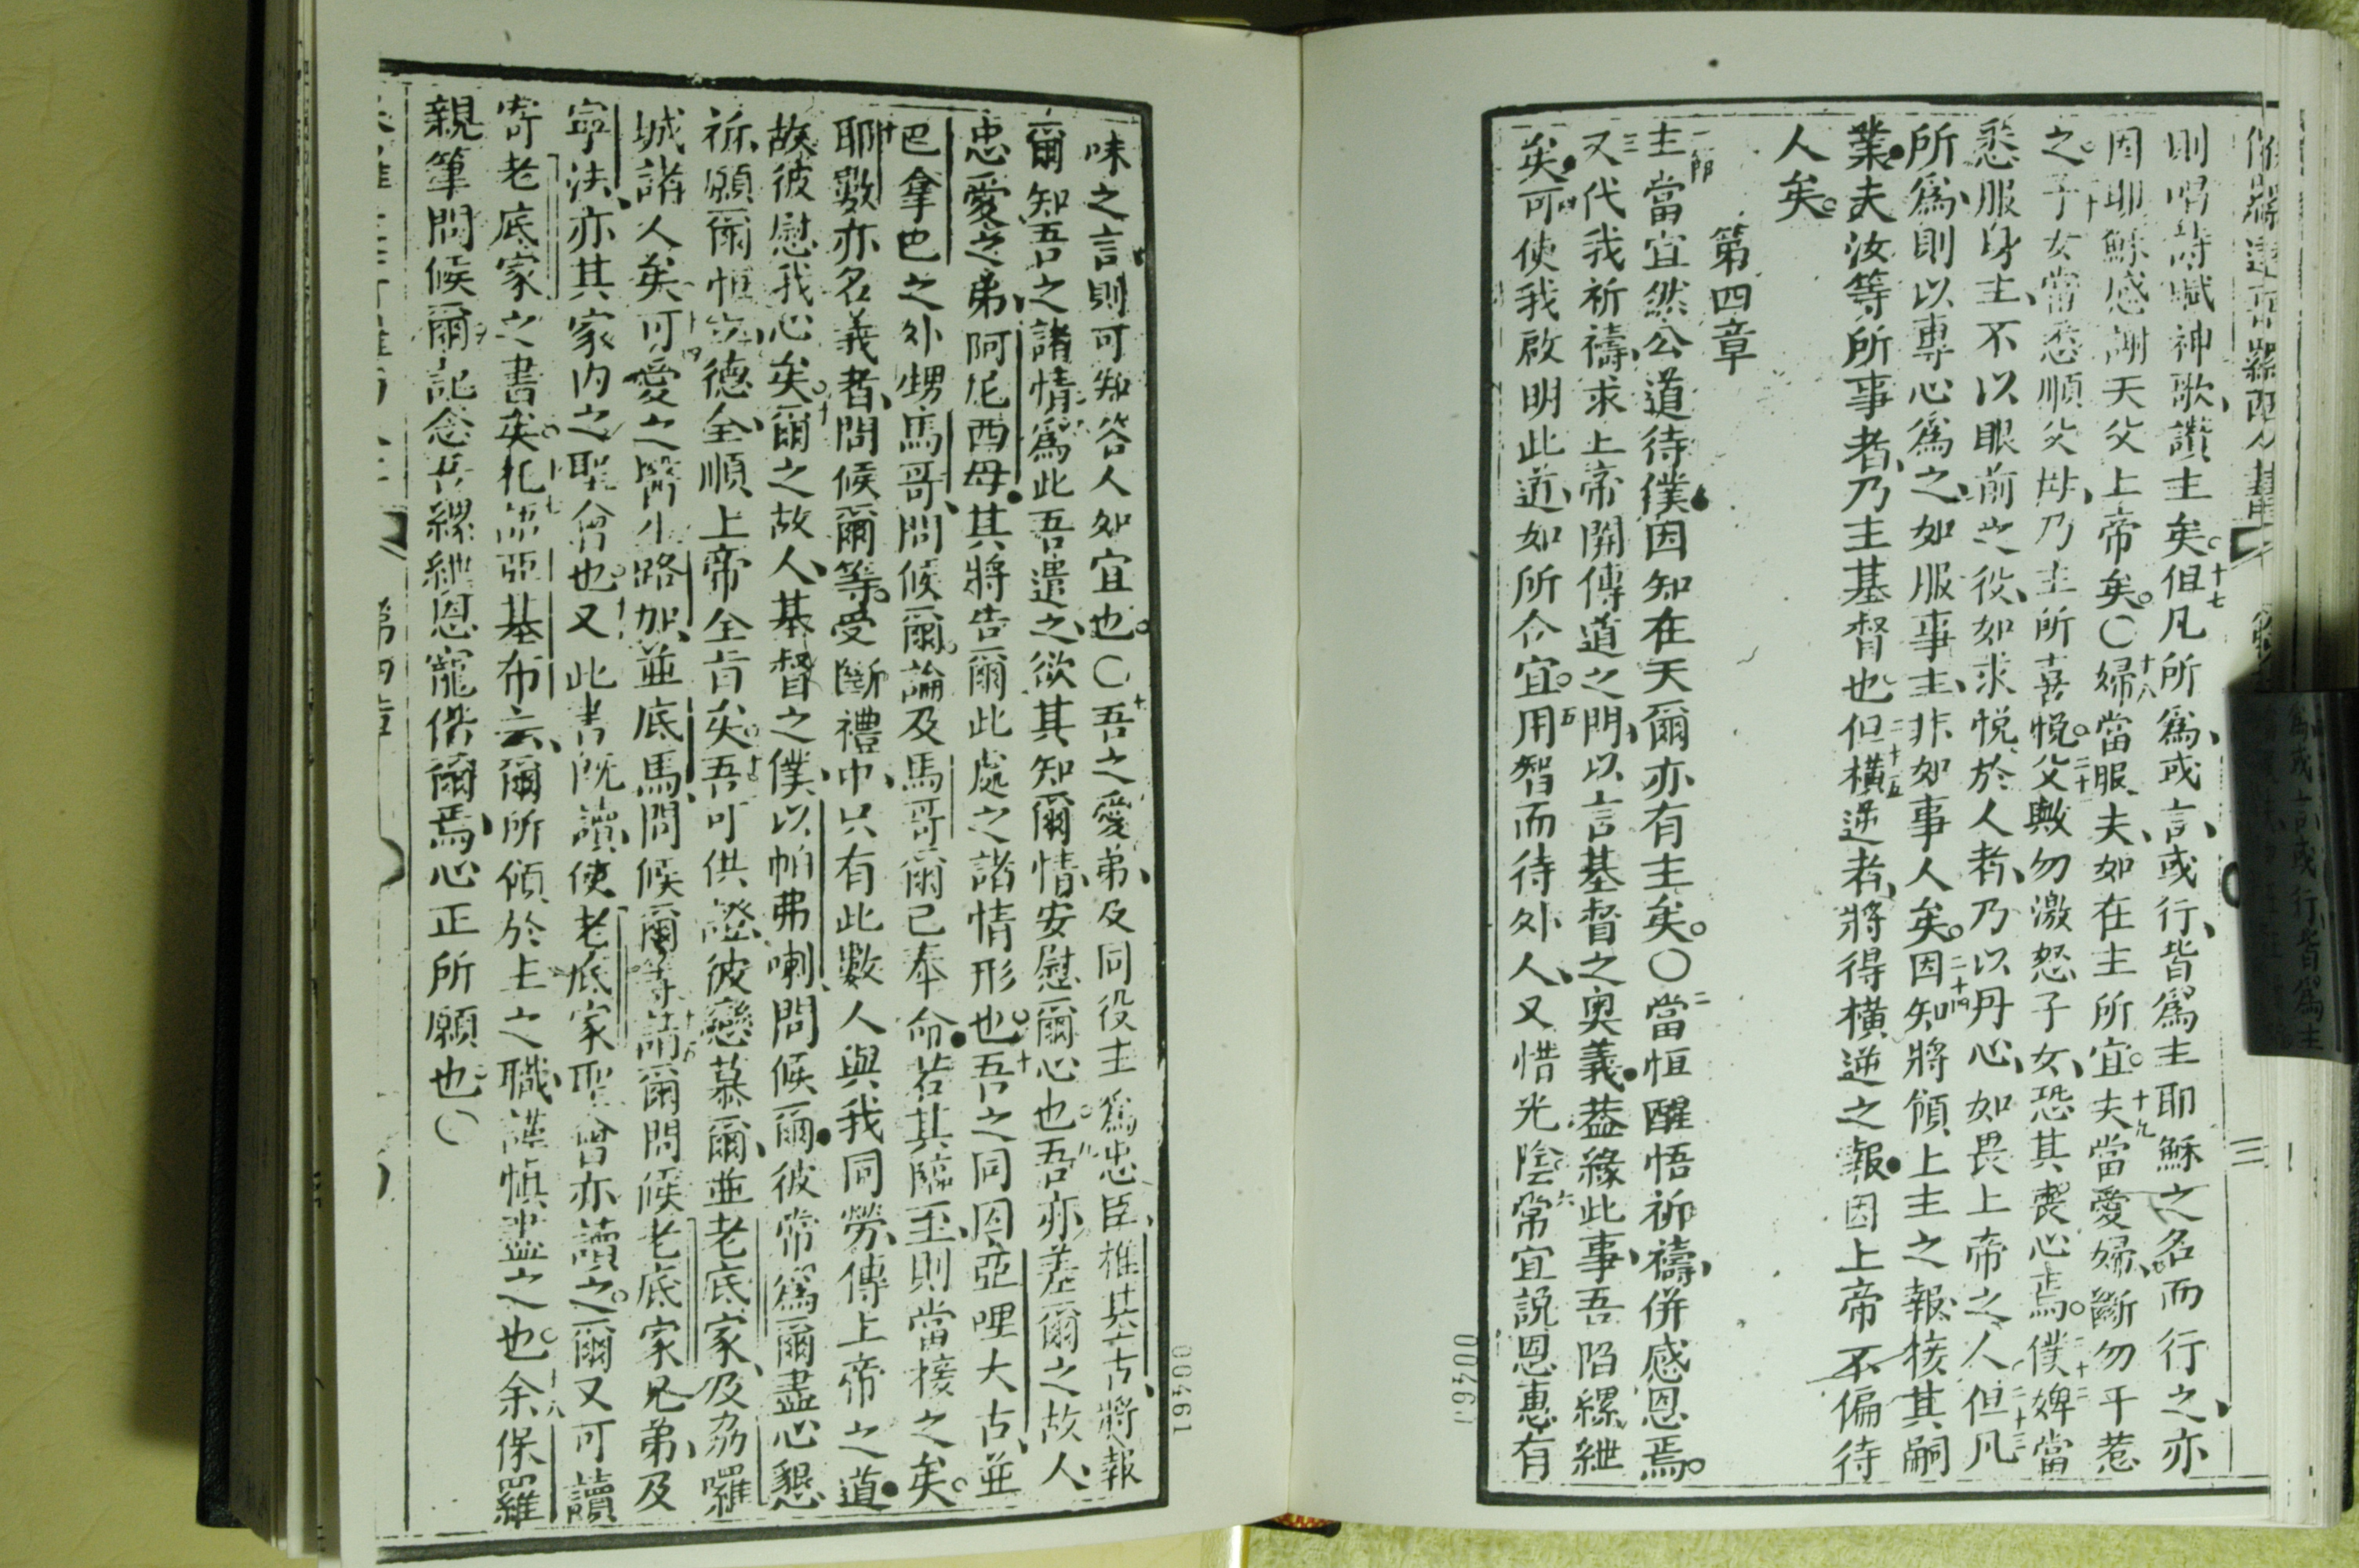 則唱詩賦神歌、讚主矣。十七但凡所爲、或言、或行、皆爲主耶穌之名而行之、亦
因耶穌感謝天父上帝矣。〇十八婦當服夫、如在主所宜。十九夫當愛婦、斷勿干惹
之。二十子女當悉順父母、乃主所喜悅。二十一父歟勿激怒子女、恐其喪心焉。二十二僕婢當
悉服身主、不以眼前之役、如求悅於人者、乃以丹心、如畏上帝之人。二十三但凡
所爲、則以專心爲之、如服事主、非如事人矣。二十四因知將領上主之報、接其嗣
業。夫汝等所事者、乃主基督也。二十五但橫逆者、將得橫逆之報。因上帝不偏待
人矣。
第四章
一節主當宜然公道待僕、因知在天爾亦有主矣。〇二當恒醒悟祈禱、併感恩焉。
三又代我祈禱、求上帝開傳道之門、以言基督之奧義、葢緣此事、吾陷縲紲
矣。四可使我啟明此道、如所合宜。五用智而待外人、又惜光陰。六常宜說恩惠有
味之言、則可知答人如宜也。〇七吾之愛弟、及同役主爲忠臣、推基古、將報
爾知吾之諸情。八爲此吾遣之、欲其知爾情、安慰爾心也。九吾亦差爾之故人、
忠愛之弟阿尼西母。其將告爾此處之諸情形也。十吾之同囚亞哩大古、並
巴拿巴之外甥馬哥、問候爾。論及馬哥爾已奉命。若其臨至、則當接之矣。
十一耶數亦名義者、問候爾等。受斷禮中、只有此數人與我同勞、傳上帝之道。
故彼慰我心矣。十二爾之故人、基督之僕、以帕弗喇、問候爾。彼常爲爾盡心懇
祈、願爾恒立德、全順上帝全旨矣。十三吾可供證、彼戀慕爾、並老底家、及希囉
城諸人矣。十四可愛之醫生路加、並底馬、問候爾等。十五請爾問候老底家兄弟、及
寧法、亦其家內之聖會也。十六又此書既讀、使老底家聖會亦讀之。爾又可讀
寄老底家之書矣。十七托語亞基布云、爾所領於主之職、謹愼盡之也。十八余保羅
親筆問候爾。記念吾縲紲。恩寵偕爾焉、心正所願也。〇
第四章
三
00460
00461